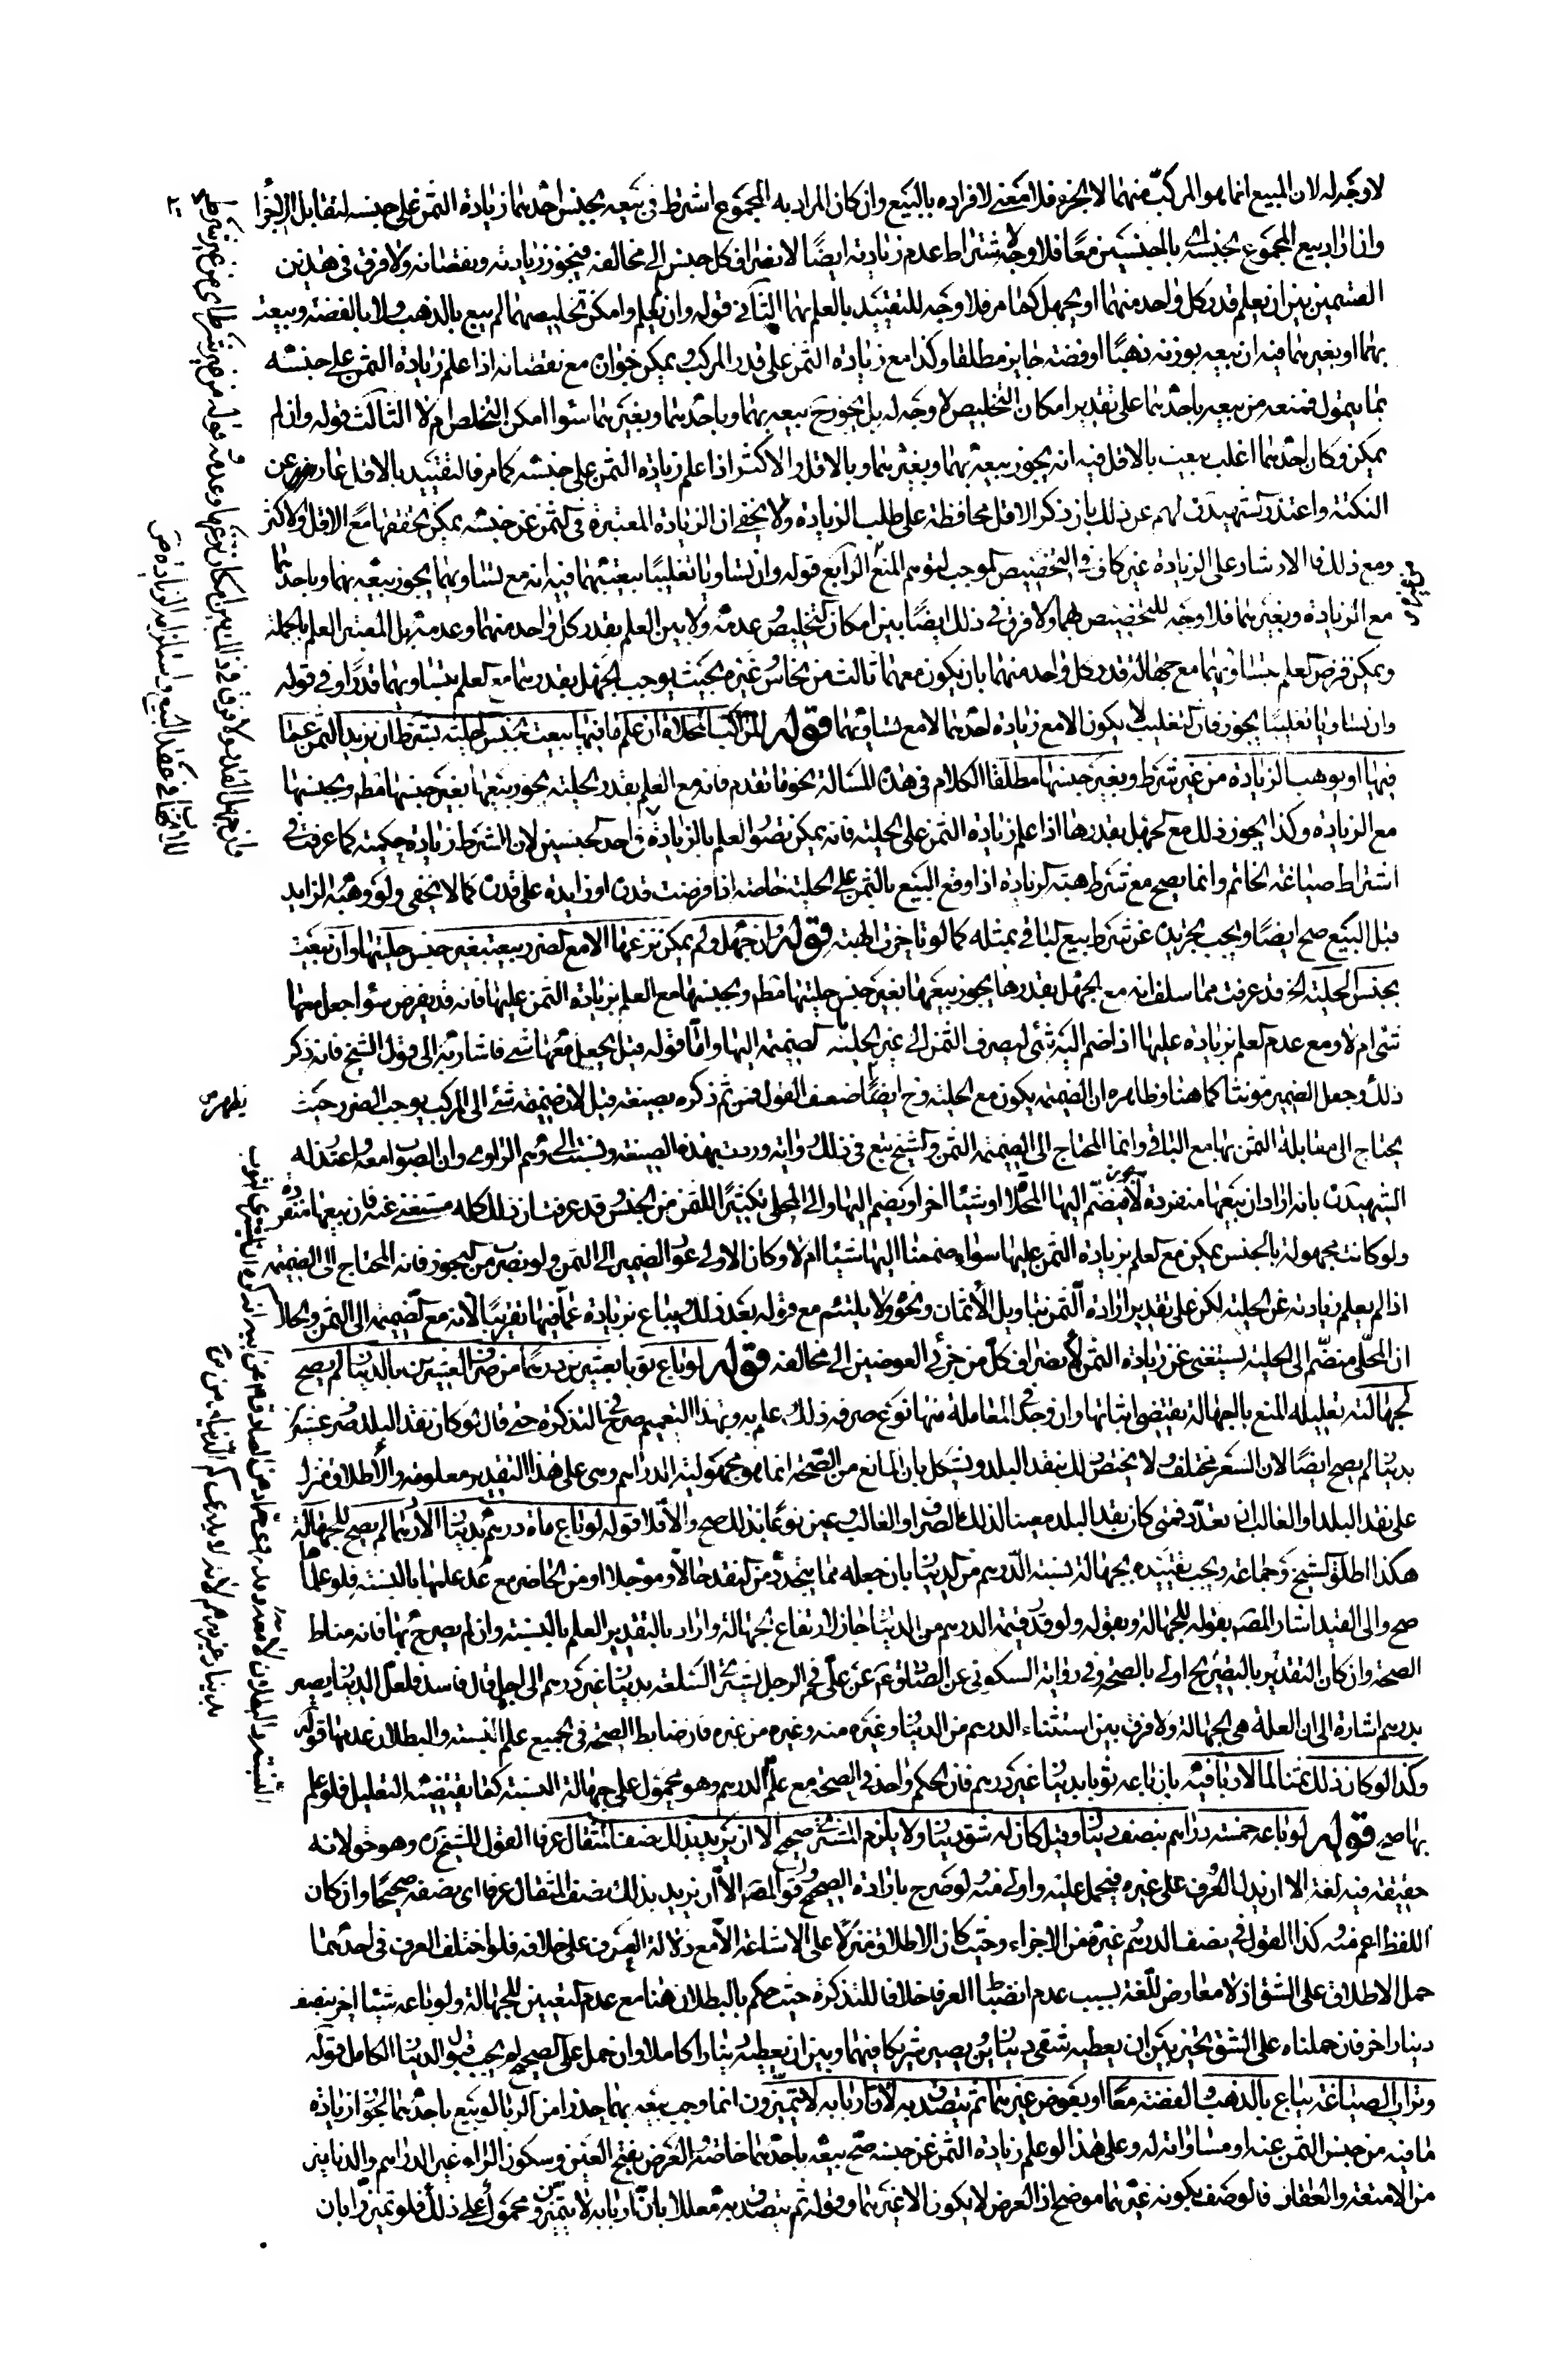 لا وجه له لان المبيع انما هو المركب منهما لا الجزء فلا معنى لافراده بالبيع وان كان المراد به المجموع اشترط فى بيعه بجنس احدهما زيادة الثمن على جنسه لتقابل الاجزاء
وان اراد بيع المجموع بجنسه بالجنسين معا فلا وجه لاشتراط عدم زيادته ايضا لانصراف كل جنس الى مخالفه فيجوز زيادته ونقصانه ولا فرق فى هذين
القسمين بين ان يعلم قدر كل واحد منهما او يجهل كما مر فلا وجه للتقييد بالعلم بهما الثانى قوله وان لم يعلم وامكن تخليصهما لم يبع بالذهب ولا بالفضة وبيعت
بهما او بغيرهما فيه ان بيعه بوزنه ذهبا او فضة جايز مطلقا وكذا مع زيادة الثمن على قدر المركب ويمكن جوازه مع نقصانه اذا علم زيادة الثمن على جنسه
بما يتمول فمنعه من بيعه باحدهما على تقدير امكان التخليص لا وجه له بل يجوز ح بيعه بهما وباحدهما وبغيرهما سواء امكن التخلص ام لا الثالث قوله وان لم
يمكن وكان احدهما اغلب بيعت بالاقل فيه انه يجوز بيعه بهما وبغيرهما وبالاقل والاكثر اذا علم زيادة الثمن على جنسه كما مر فالتقييد بالاقل عار عن
النكتة واعتذر الشهيد ره لهم عن ذلك بان ذكر الاقل محافظة على طلب الزيادة ولا يخفى ان الزيادة المعتبرة فى الثمن عن جنسه يمكن تحققها مع الاقل والاكثر
ومع ذلك فالارشاد على الزيادة غير كاف فى التخصيص الموجب لتوهم المنع الرابع قوله وان تساويا تغليبا بيعت بهما فيه انه مع تساويهما يجوز بيعه بهما وباحدهما
مع الزيادة وبغيرهما فلا وجه للتخصيص بهما ولا فرق فى ذلك ايضا بين امكان التخليص وعدمه ولا بين العلم بقدر كل واحد منهما وعدمه بل المعتبر العلم بالجملة
ويمكن فرض العلم بتساويهما مع جهالة قدر كل واحد منهما بان يكون معهما ثالث من نحاس وغيره بحيث يوجب الجهل بقدرهما مع العلم بتساويهما قدرا وفى قوله
وان تساويا تغليبا تجوز فان التغليب لا يكون الا مع زيادة احدهما لا مع تساويهما قوله المراكب المحلاة ان علم ما فيها بيعت بجنس الحلية بشرط ان يزيد الثمن عما
فيها او يوهب الزيادة من غير شرط وبغير جنسها مطلقا الكلام فى هذه المسالة نحو ما تقدم فانه مع العلم بقدر الحلية يجوز بيعها بغير جنسها مطم وبجنسها
مع الزيادة وكذا يجوز ذلك مع الجهل بقدرها اذا علم زيادة الثمن على الحلية فانه يمكن تصور العلم بالزيادة فى احد الجنسين لان الشرط زيادة حكمية كما عرفت فى
اشتراط صياغة الخاتم وانما يصح مع شرط هبة الزيادة اذا وقع البيع بالثمن على الحلية خاصة اذا فرضت قدره او زايدة على قدره كما لا يخفى ولو وهبه الزايد
قبل البيع صح ايضا ويجب تجريده عن شرط بيع الباقى بمثله كما لو تاخرت الهبة قوله وان جهل ولم يمكن نزعها الا مع الضرر بيعت بغير جنس حليتها وان بيعت
بجنس الحلية الخ قد عرفت مما سلف انه مع الجهل بقدرها يجوز بيعها بغير جنس حليتها مطم وبجنسها مع العلم بزيادة الثمن عليها فانه قد يفرض سواء جعل معها
شئ ام لا ومع عدم العلم بزيادة عليها اذا ضم اليه شئ ليصرف الثمن الى غير الحلية لضميمة اليها واما قوله قيل يجعل معها شئ فاشارة الى قول الشيخ فانه ذكر
ذلك وجعل الضمير مؤنثا كما هنا وظاهره ان الضميمة يكون مع الحلية وح ايضا ضعف القول فمن ثم ذكره بصيغة قيل لان ضميمة شئ الى المركب يوجب الضرر حيث
يحتاج الى مقابلة الثمن بها مع الباقى وانما المحتاج الى الضميمة الثمن والشيخ تبع فى ذلك رواية وردت بهذه الصيغة ونسبت الى وهم الراوى وان الصواب معه واعتذر له
الشهيد ره بانه اراد ان بيعها منفردة لا يجوز فيضم اليها المحلى او شيئا اخر او يضم اليها والى المحلى تكثيرا للثمن من الجنس وقد عرفت ان ذلك كله مستغنى عنه فان بيعها منفردة
ولو كانت مجهولة بالجنس يمكن مع العلم بزيادة الثمن عليها سواء ضممنا اليها شيئا ام لا وكان الاولى عود الضمير الى الثمن ولو بضرب من التجوز فانه المحتاج الى الضميمة
اذا لم يعلم زيادته عن الحلية لكن على تقدير ارادة الثمن بتاويل الاثمان ونحوه ولا يلتئم مع قوله بعد ذلك يباع بزيادة عما فيها تقريبا لانه مع الضميمة الى الثمن والحال
ان المحلى منضم الى الحلية يستغنى عن زيادة الثمن لانصراف كل من جزئى العوضين الى مخالفه قوله لو باع ثوبا بعشرين درهما من صرف العشرين بالدينار لم يصح
لجهالته تعليله المنع بالجهالة يقتضى اثباتها وان وجد فى المعاملة منها نوع صرفه ذلك لعدم علم به وبهذا التعميم صرح فى التذكرة حتى قال لو كان نقد البلد صرف عشرين
بدينار لم يصح ايضا لان السعر يختلف ولا يختص ذلك بنقد البلد ويشكل بان المانع من الصحة انما هو مجهولية الدراهم وهى على هذا التقدير معلومة والاطلاق منزل
على نقد البلد او الغالب ان تعدد فمتى كان نقد البلد معينا لذلك الصرف او الغالب وعين نوعا بذلك صح والا فلا قوله لو باع مائة درهم بدينار الا درهما لم يصح للجهالة
هكذا اطلق الشيخ وجماعة ويجب تقييده بجهالة نسبة الدرهم من الدينار بان جعله مما يتجدد من النقد حالا او مؤجلا او من الحاضر مع عدم علمهما بالنسبة فلو علماها
صح والى القيد اشار المصه بقوله للجهالة وبقوله ولو قدر قيمة الدرهم من الدينار جاز لارتفاع الجهالة واراد بالتقدير العلم بالنسبة وان لم يصرح بها فانه مناط
الصحة وان كان التقدير بالتصريح اولى بالصحة وفى رواية السكونى عن الصادق ع عن على ع فى الرجل يشترى السلعة بدينار غير درهم الى اجل قال فاسد فلعل الدينار يصير
بدرهم اشارة الى ان العلة هى الجهالة ولا فرق بين استثناء الدرهم من الدينار وغيره منه وغيره من غيره فان ضابط الصحة فى الجميع علم النسبة والبطلان عدمها قوله
وكذا لو كان ذلك ثمنا لما لا ربا فيه بان باعه ثوبا بدينار غير درهم فان الحكم واحد فى الصحة مع علم الدرهم وهو محمول على جهالة النسبة كما يقتضيه التعليل فلو علم
بها صح قوله لو باعه خمسة دراهم بنصف دينار قيل كان له شق دينار ولا يلزم المشترى صحيح الا ان يريد بذلك نصف المثقال عرفا القول للشيخ ره وهو حق لانه
حقيقة فيه لغة الا ان يدل العرف على غيره فيحمل عليه واولى منه لو صرح بارادة الصحيح وقول المصه الا ان يريد بذلك نصف المثقال عرفا اى نصفه صحيحا وان كان
اللفظ اعم منه كذا القول فى نصف الدرهم وغيره من الاجزاء وحيث كان الاطلاق منزلا على الاشاعة الا مع دلالة العرف على خلافه فلو اختلف العرف فى احدهما
حمل الاطلاق على الشق اذ لا معارض للغة بسبب عدم انضباط العرف خلافا للتذكرة حيث حكم بالبطلان هنا مع عدم التعيين للجهالة ولو باعه شيئا اخر بنصف
دينار اخر فان حملناه على الشق تخير بين ان يعطيه شقى دينارين يصير شريكا فيهما وبين ان يعطيه دينارا كاملا وان حمل على الصحيح لم يجب قبول الدينار الكامل قوله
وتراب الصياغة يباع بالذهب والفضة معا او بعوض غيرهما ثم يتصدق به لان اربابه لا يتميزون انما وجب بيعه بهما حذرا من الربا لو بيع باحدهما لجواز زيادة
ما فيه من جنس الثمن عنه او مساواته له وعلى هذا لو علم زيادة الثمن عن جنسه صح بيعه باحدهما خاصة العرض بفتح العين وسكون الراء غير الدراهم والدنانير
من الامتعة والعقار فالوصف بكونه غيرهما موضح اذ العرض لا يكون الا غيرهما وقوله ثم يتصدق به معللا بان اربابه لا يتميزون محمول على ذلك فلو تميزوا بان